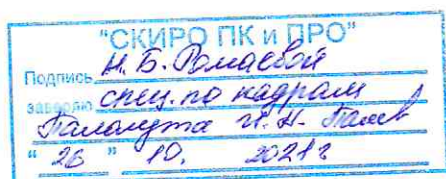 "СКИРО ПК и ПРО"
Подпись Н. Б. Ромаевой
заверяю спец. по кадрам
" 26 " 10. 2021г